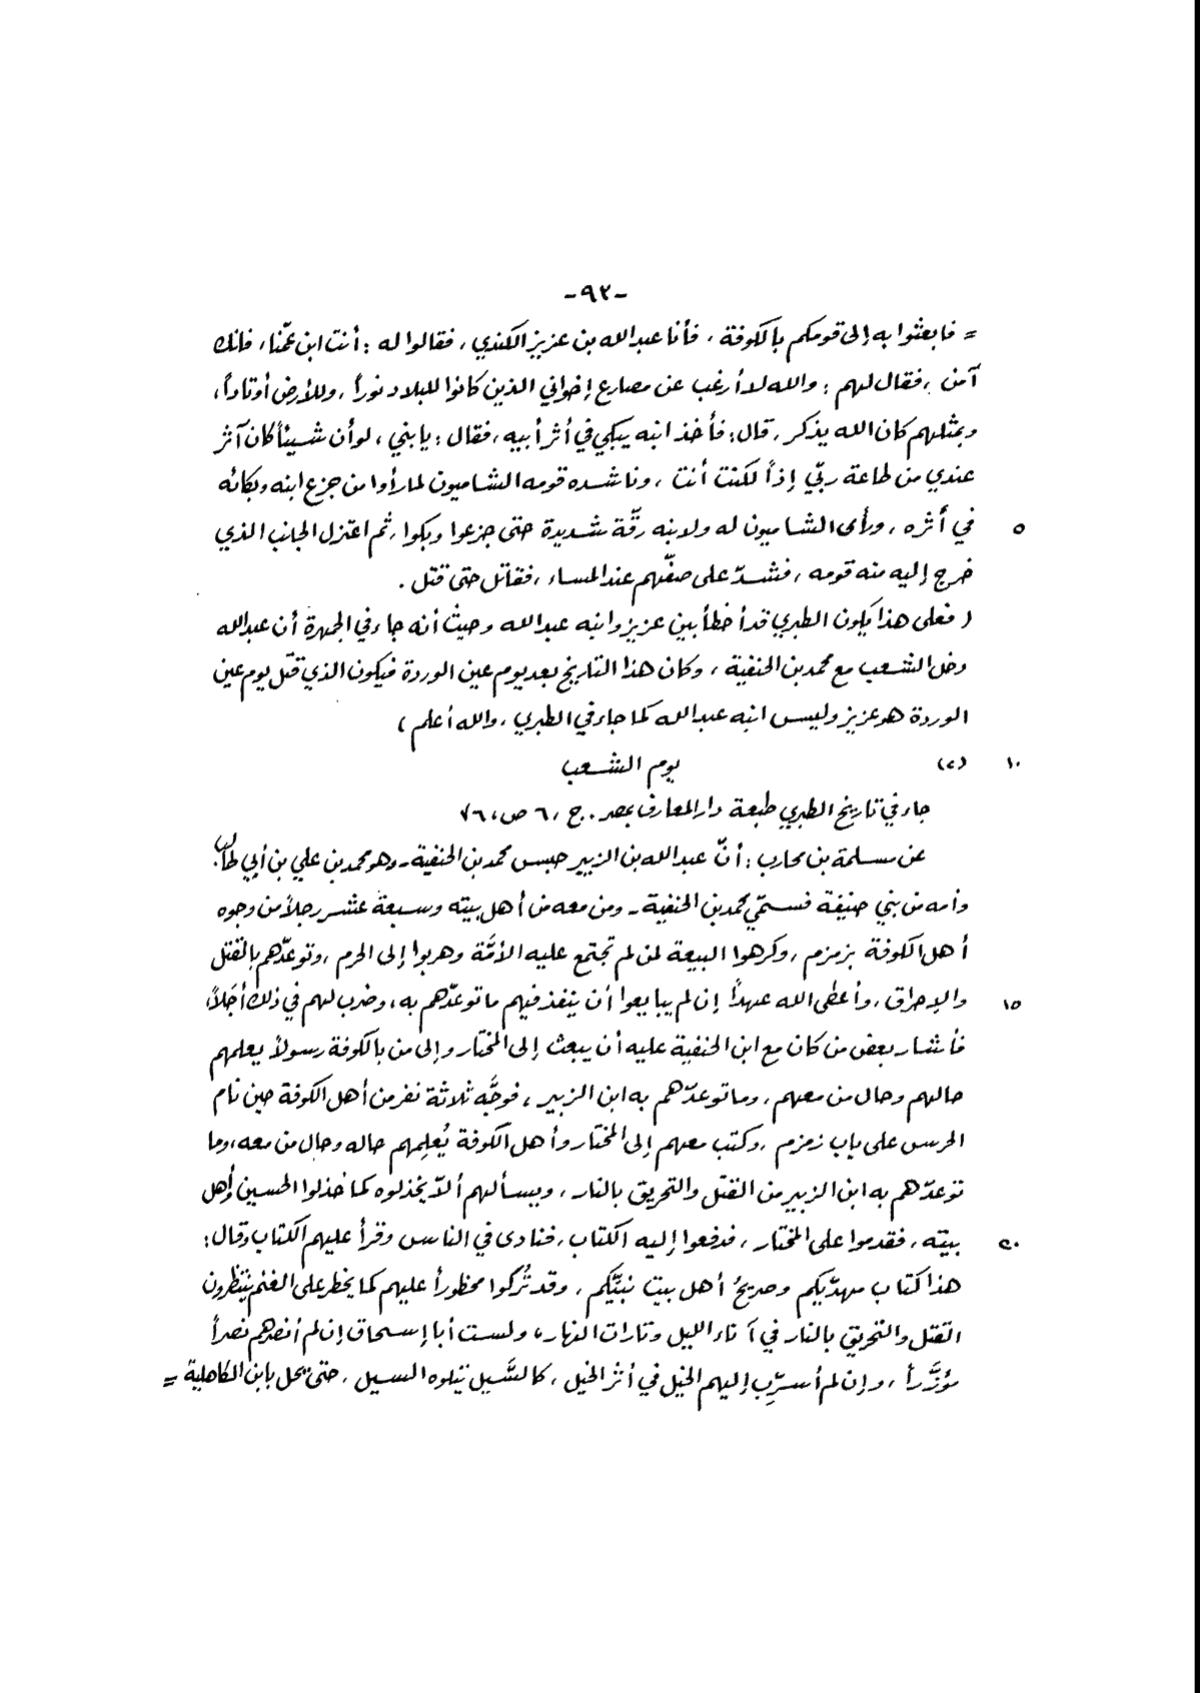 -٩٢-
= فابعثوا به إلى قومكم بالكوفة ، فأنا عبد الله بن عزيز الكندي ، فقالوا له : أنت ابن عمّنا ، فإنك
آمن ، فقال لهم : والله لا أرغب عن مصارع إخواني الذين كانوا للبلاد نوراً ، وللأرض أوتاداً ،
وبمثلهم كان الله يذكر ، قال : فأخذ ابنه يبكي في أثر أبيه ، فقال : يا بني ، لو أن شيئاً كان آثر
عندي من طاعة ربّي إذاً لكنت أنت ، وناشده قومه الشاميون لما رأوا من جزع ابنه وبكائه
٥ في أثره ، ورأى الشاميون له ولابنه رقّة شديدة حتى جزعوا وبكوا ، ثم اعتزل الجانب الذي
خرج إليه منه قومه ، فشدّ على صفّهم عند المساء ، فقاتل حتى قتل .
( فعلى هذا يكون الطبري قد أخطأ بين عزيز وابنه عبد الله وحيث أنه جاء في الجمهرة أن عبد الله
دخل الشعب مع محمد بن الحنفية ، وكان هذا التاريخ بعد يوم عين الوردة فيكون الذي قتل يوم عين
الوردة هو عزيز وليس ابنه عبد الله كما جاء في الطبري ، والله أعلم )
١٠ (٢) يوم الشعب
جاء في تاريخ الطبري طبعة دار المعارف بمصر . ج ٦، ص ، ٧٦
عن مسلمة بن محارب : أنّ عبد الله بن الزبير حبس محمد بن الحنفية - وهو محمد بن علي بن أبي طالب
وأمه من بني حنيفة فسمّي محمد بن الحنفية - ومن معه من أهل بيته وسبعة عشر رجلاً من وجوه
أهل الكوفة بزمزم ، وكرهوا البيعة لمن لم تجتمع عليه الأمّة وهربوا إلى الحرم ، وتوعّدهم بالقتل
١٥ والإحراق ، وأعطى الله عهداً إن لم يبايعوا أن ينفذ فيهم ما توعّدهم به ، وضرب لهم في ذلك أجلاً ،
فأشار بعض من كان مع ابن الحنفية عليه أن يبعث إلى المختار وإلى من بالكوفة رسولاً يعلمهم
حالهم وحال من معهم ، وما توعدّهم به ابن الزبير ، فوجّه ثلاثة نفر من أهل الكوفة حين نام
الحرس على باب زمزم ، وكتب معهم إلى المختار وأهل الكوفة يُعلِمهم حاله وحال من معه ، وما
توعدّهم به ابن الزبير من القتل والتحريق بالنار ، ويسألهم ألاّ يخذلوه كما خذلوا الحسين وأهل
٢٠ بيته ، فقدموا على المختار ، فدفعوا إليه الكتاب ، فنادى في الناس وقرأ عليهم الكتاب وقال :
هذا كتاب مهديّكم وصريحُ أهل بيت نبيّكم ، وقد تُركوا محظوراً عليهم كما يحظر على الغنم ينتظرون
القتل والتحريق بالنار في آناء الليل وتارات النهار ، ولست أبا إسحاق إن لم أنصرهم نصراً
مؤزَّراً ، وإن لم أسرِّب إليهم الخيل في أثر الخيل ، كالسَّيل يتلوه السيل ، حتى يحل بابن الكاهلية =